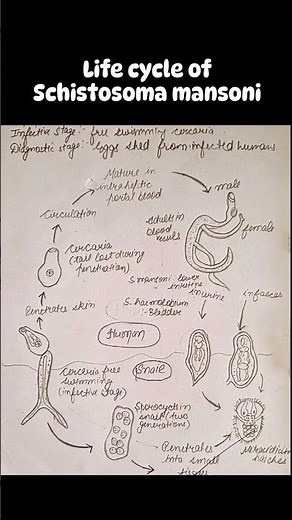 Life cycle of
Schistosoma mansoni
Infective stage:- free swimming cercaria.
Diagnostic stage:- Eggs shed from infected humans
Mature in
intrahepatic
portal blood
male
Circulation
Adults in
blood
vessels
female
Cercaria
(tail lost during
penetration)
S. mansoni lower
intestine
in urine
in faeces
S. haematobium
:- Bladder
Penetrates skin
Human
Snale
Cercaria free
swimming
(infective stage)
Sporocysts in
snail (two
generations)
Penetrates
into snail
tissue
miracidium
hatches